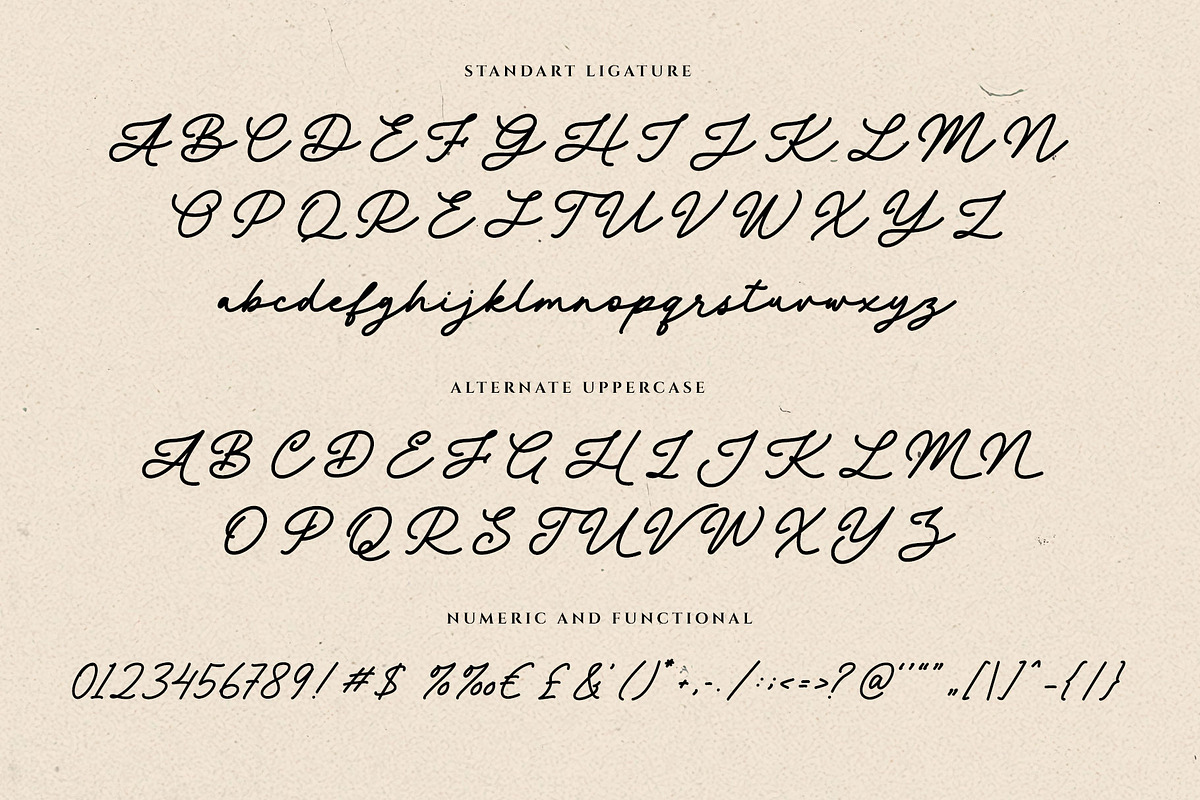 STANDART LIGATURE
A B C D E F G H I J K L M N
O P Q R E S T U V W X Y Z
abcdefghijklmnopqrstuvwxyz
ALTERNATE UPPERCASE
A B C D E F G H I J K L M N
O P Q R S T U V W X Y Z
NUMERIC AND FUNCTIONAL
0123456789! #$ %‰€ £ &' ()*+,-. /:;<=>? @‘’“” „[\]^ -{|}